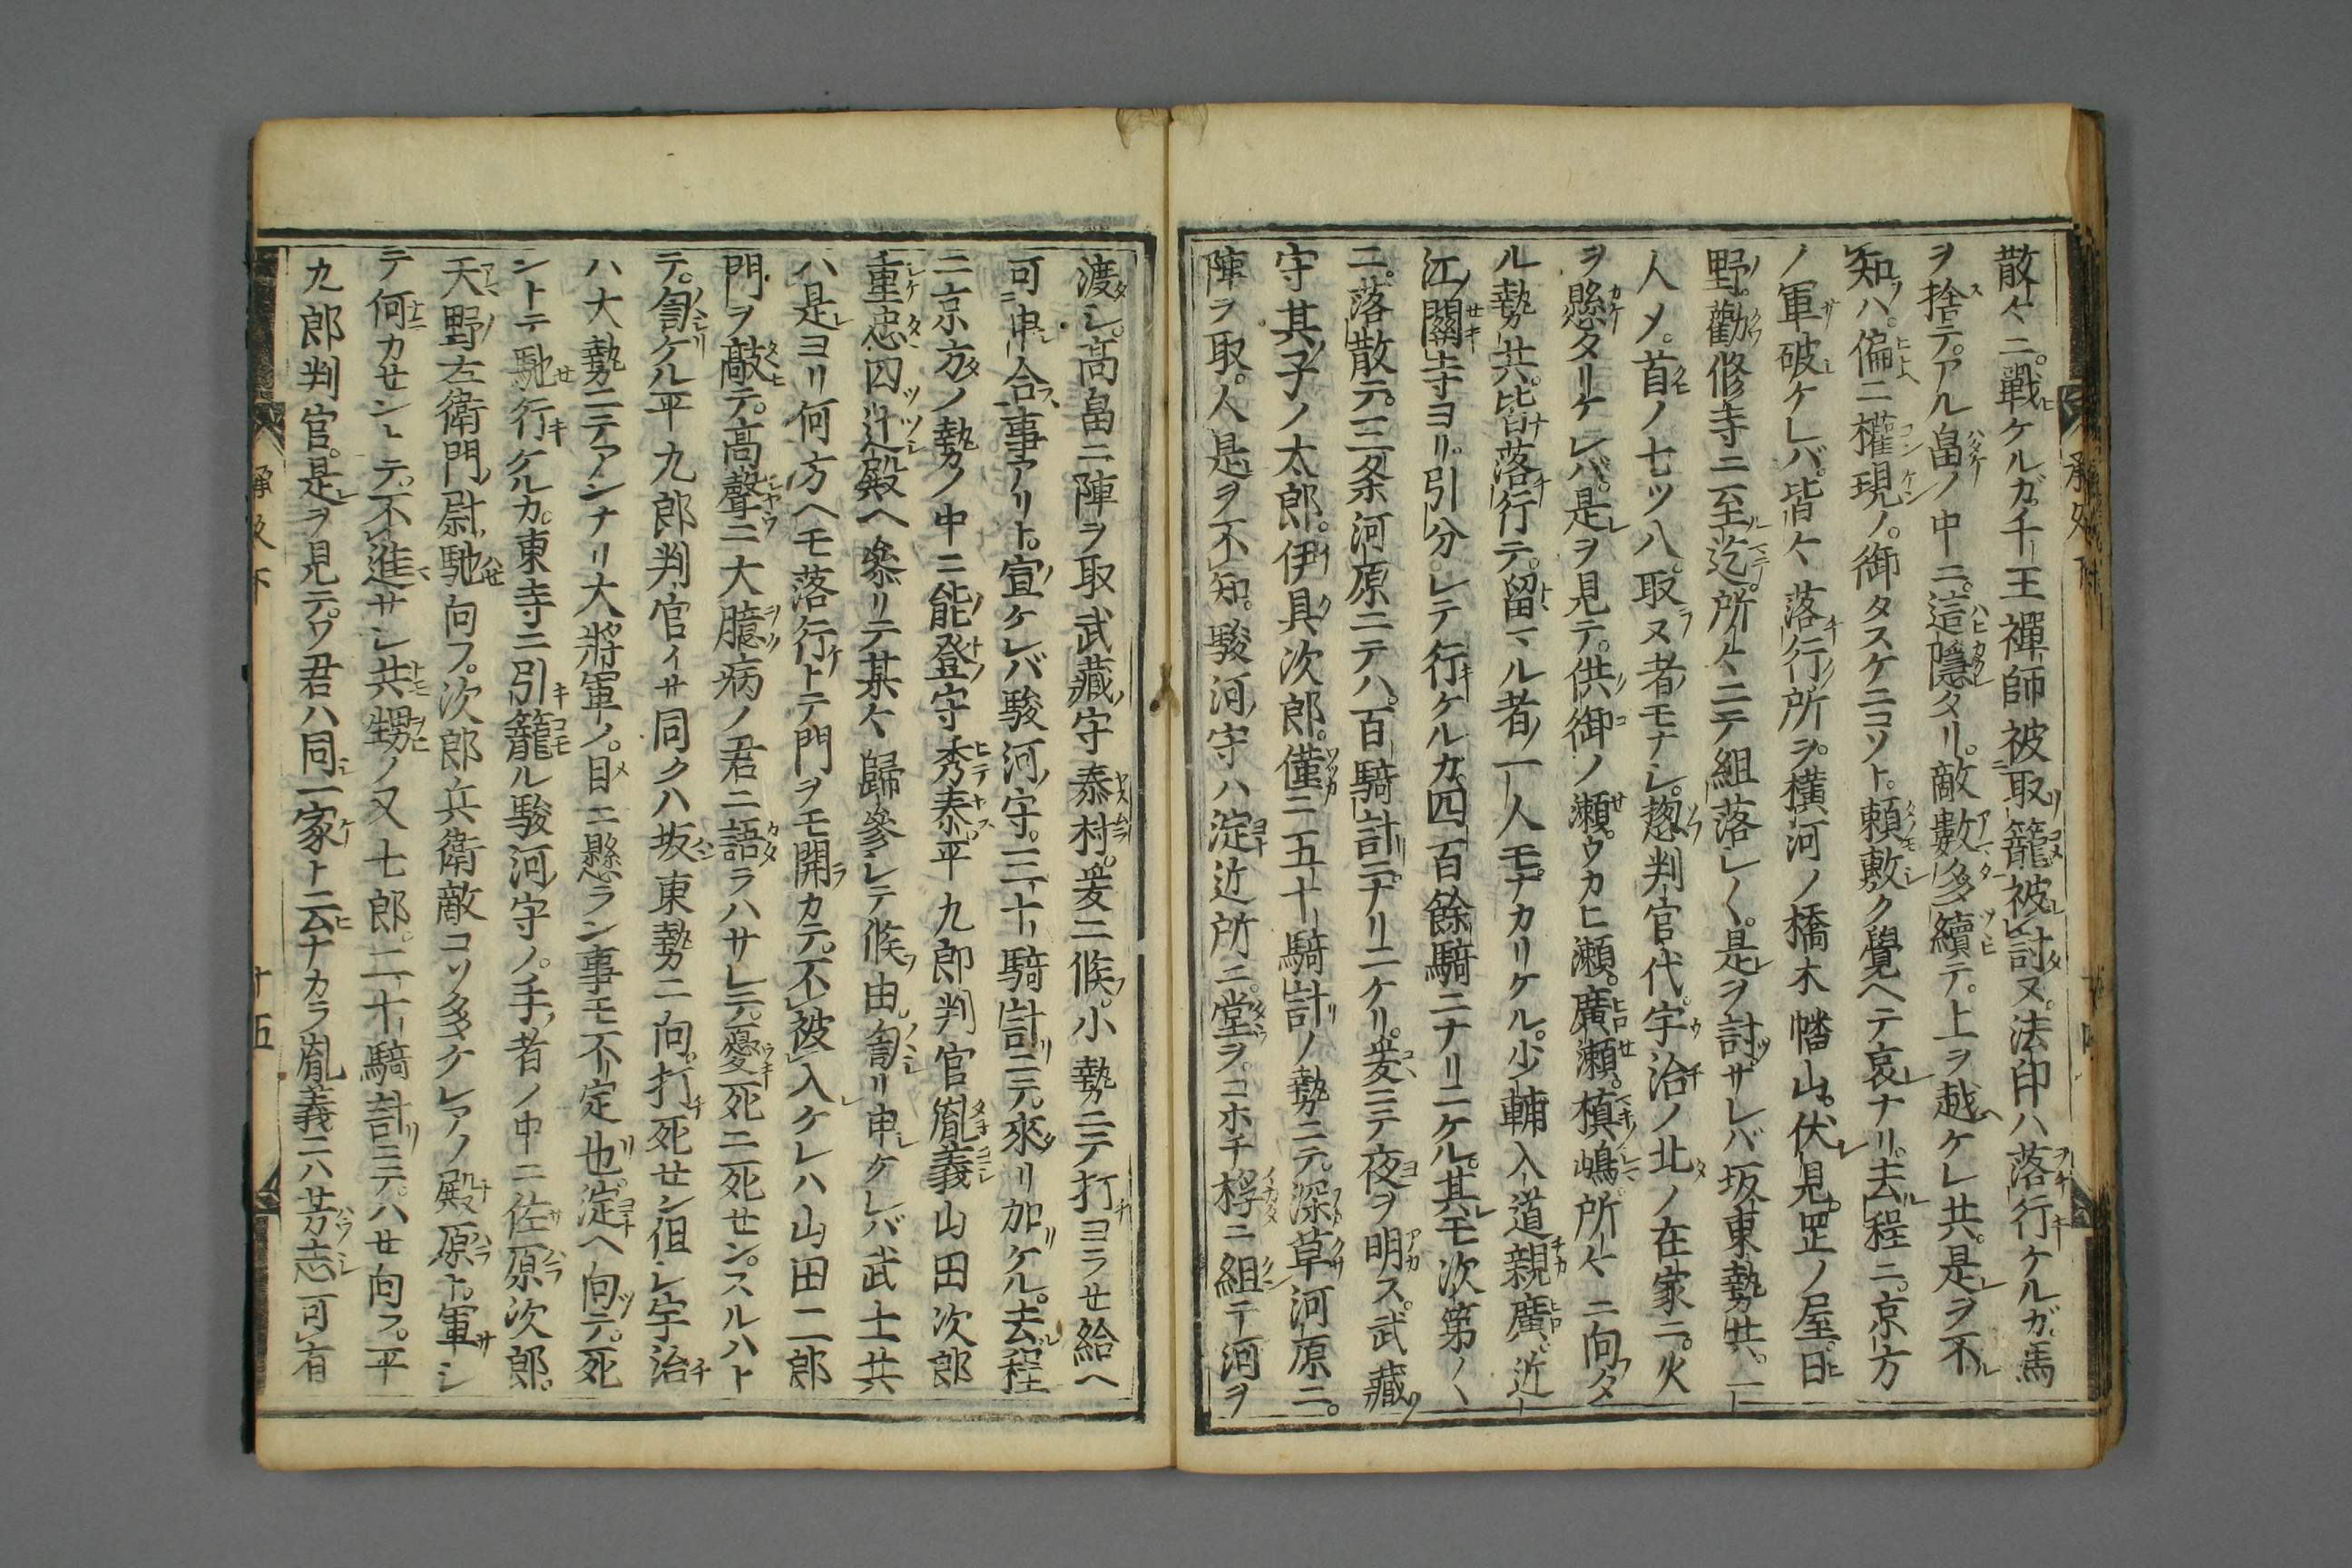 散々ニ戰ケルガ千王禪師被取籠被討ヌ法印ハ落行ケルガ馬
ヲ捨テアル畠ノ中ニ這隱タリ敵數多續テ上ヲ越ケレ共是ヲ不
知ハ偏ニ權現ノ御タスケニコソト頼敷ク覺ヘテ哀ナリ去程ニ京方
ノ軍破ケレバ皆々落行所ヲ横河ノ橋木幡山伏見岡ノ屋日
野勸修寺ニ至迄所々ニテ組落シ〳〵是ヲ討ザレバ坂東勢共一
人〆首ノ七ツ八取ヌ者モナシ趂判官代宇治ノ北ノ在家ニ火
ヲ懸タリケレバ是ヲ見テ供御ノ瀬ウカヒ瀬廣瀬槙嶋所々ニ向タ
ル勢共皆落行テ留マル者一人モナカリケル少輔入道親廣近
江關寺ヨリ引分レテ行ケルカ四百餘騎ニナリニケル其モ次第〳〵
ニ落散テ三条河原ニテハ百騎計ニナリニケリ爰ニテ夜ヲ明ス武藏
守其子ノ太郎伊具次郎僅ニ五十騎計ノ勢ニテ深草河原ニ
陣ヲ取人是ヲ不知駿河守ハ淀近所ニ堂ヲコホチ桴ニ組テ河ヲ
渡シ高畠ニ陣ヲ取武藏守泰村爰ニ候小勢ニテ打ヨラせ給ヘ
可申合事アリト宣ケレバ駿河守三十騎計ニテ來リ加ケル去程
ニ京方ノ勢ノ中ニ能登守秀泰平九郎判官胤義山田次郎
重忠四辻殿ヘ參リテ某々歸參シテ候由訇リ申ケレバ武士共
ハ是ヨリ何方ヘモ落行トテ門ヲモ開カテ不被入ケレハ山田二郎
門ヲ敲テ高聲ニ大臆病ノ君ニ語ラハサレテ憂死ニ死せンスルハト
テ訇ケル平九郎判官イサ同クハ坂東勢ニ向打死せン但シ宇治
ハ大勢ニテアンナリ大將軍ノ目ニ懸ラン事モ不定也淀ヘ向テ死
ントテ馳行ケルカ東寺ニ引籠ル駿河守ノ手者ノ中ニ佐原次郎
天野左衛門尉馳向フ次郎兵衛敵コソ多ケレアノ殿原ト軍シ
テ何カせンシテ不進サレ共甥ノ又七郎二十騎計ニテハせ向フ平
九郎判官是ヲ見テワ君ハ同一家ト云ナカラ胤義ニハ芳志可有
承久下
十五